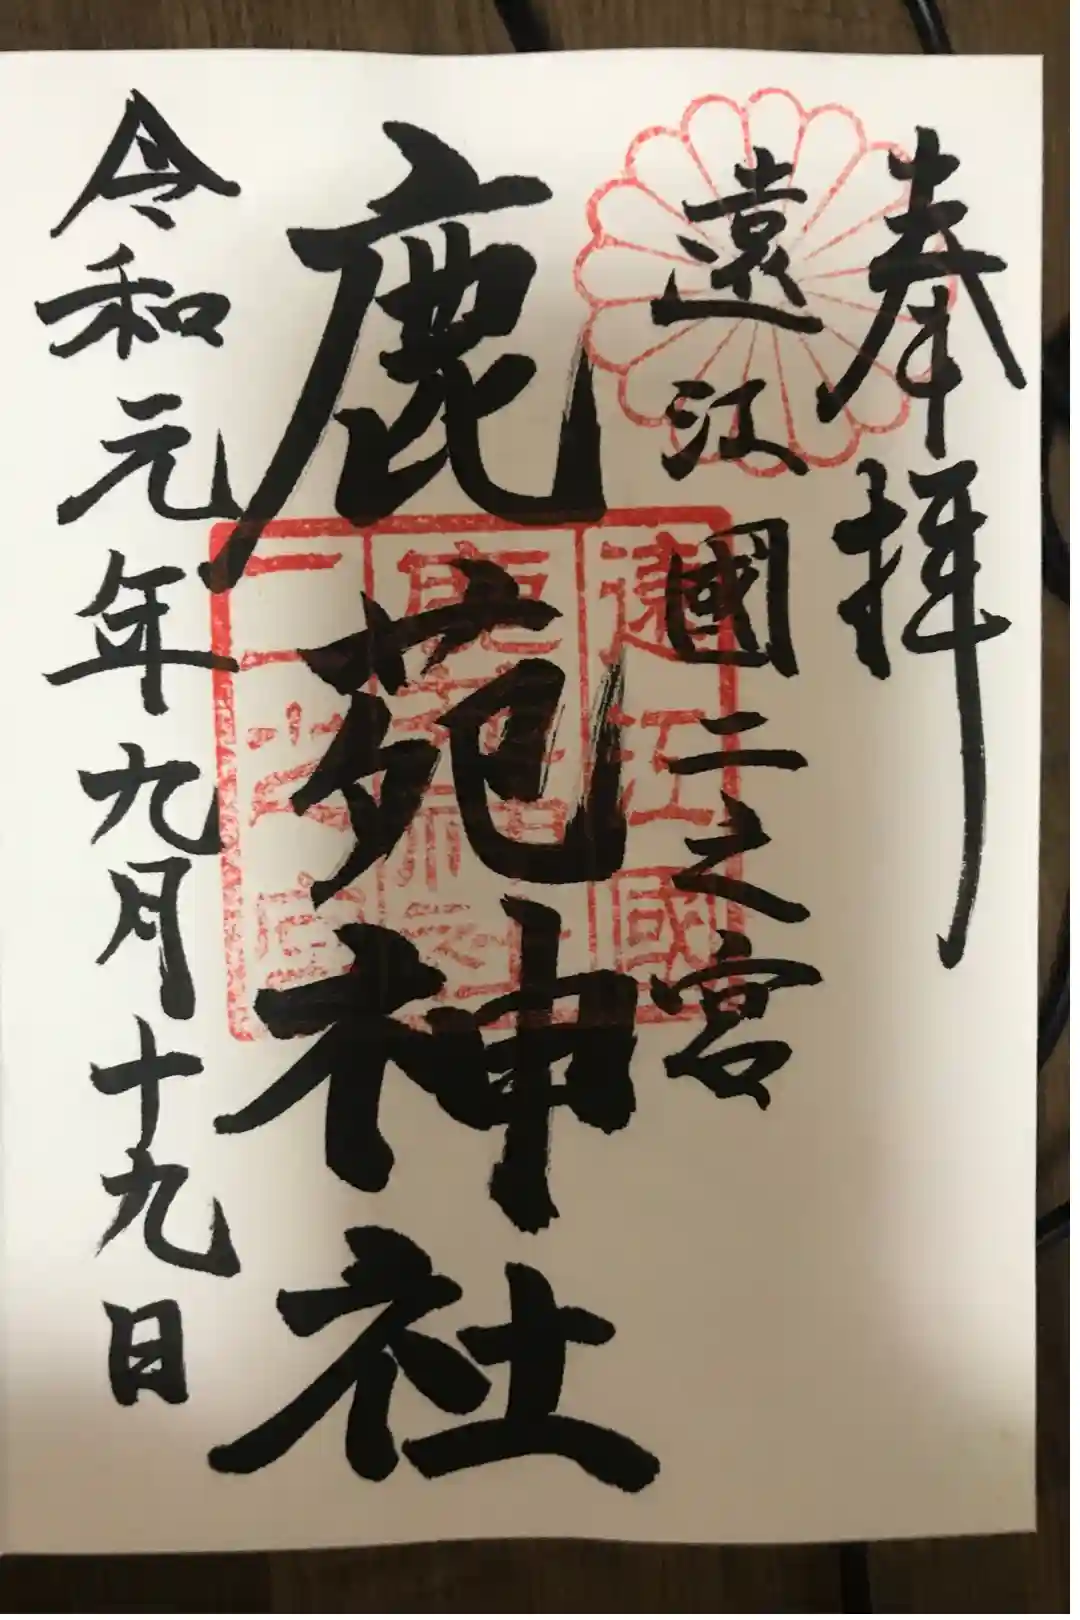 奉拝
遠江國二之宮
鹿苑神社
令和元年九月十九日
遠江國
二之宮